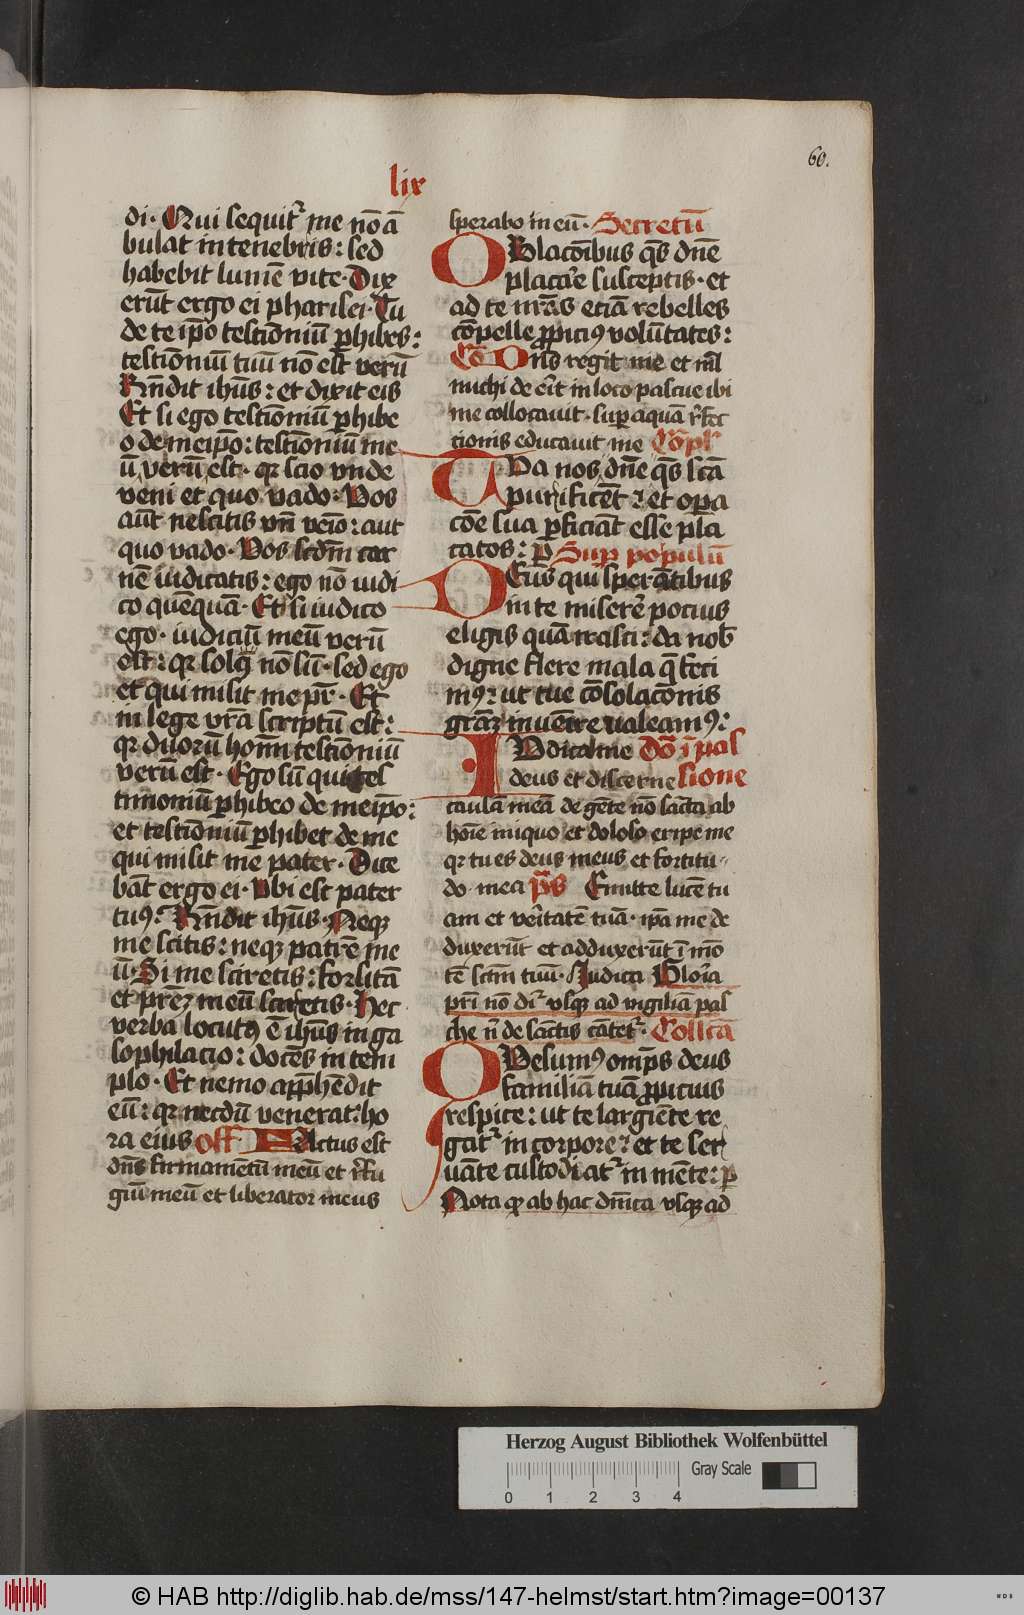 60.
lix
di. Qui sequit᷑ me nō ā
bulat in tenebris: sed
habebit lumē vite. Dix
erūt ergo ei pharisei. Tu
de te ip̄o testīoniū ꝑhibes:
testīoniū tuū nō est verū
Rn̄dit ihūs: et dixit eis
Et si ego testīoniū ꝑhibe
o de meip̄o: testīoniū me
ū verū est. qꝛ scio vnde
veni et quo vado. Vos
aūt nescitis vn̄ veīo: aut
quo vado. Vos scdm̄ car
nē iudicatis: ego nō iudi
co quēquā. Et si iudico
ego. iudiciū meū verū
est: qꝛ solꝰ nō sū. sed ego
et qui misit me pr̄. Et
in lege vr̄a scriptū est:
qꝛ duorū hoīm testīoniū
verū est. Ego sū qui tes
timoniū ꝑhibeo de meip̄o:
et testīoniū ꝑhibet de me
qui misit me pater. Dice
bāt ergo ei. Vbi est pater
tuꝰ: Rn̄dit ihūs. Neqꝫ
me scitis: neqꝫ patrē me
ū. Si me sciretis: forsitā
et prēꝫ meū sciretis. Hec
verba locutꝰ ē ihūs in ga
sophilacio: docēs in tem
plo. Et nemo app̄hēdit
eū: qꝛ necdū venerat ho
ra eius off Factus est
dn̄s firmamētū meū et r̄fu
giū meū et liberator meus
sperabo in eū. Secretū
Oblacōibus qs̄ dn̄e
placar̄e susceptis. et
ad te nr̄as etiā rebelles
cōpelle ꝓpiciꝰ volūtates:
Cō Dn̄s regit me et nil
michi de er̄it in loco pascue ibi
me collocauit. suꝑ aquā r̄fec
tionis educauit me Cōpl
Tua nos dn̄e qs̄ sc̄a
purificēt: et oꝑa
cōe sua ꝑficiāt esse pla
catos: ꝑ Suꝑ populū
Deus qui sperātibus
in te miserer̄ pocius
eligis quā irasci: da nob̄
digne flere mala q̄ feci
mꝰ: ut tue cōsolacōnis
grāꝫ inuenire ualeamꝰ:
Iudica me Dō ī pas
deus et discerne sione
causam meā de gēte nō sancta ab
hoīe iniquo et doloso eripe me
qꝛ tu es deus meus et fortitu
do mea p̄s Emitte lucē tu
am et ver̄itatē tuā. ip̄a me de
duxerūt et adduxerūt ī mō
tē sctm̄ tuū. Judica Glor̄ia
pr̄i nō dr̄ vsqꝫ ad vigiliā pas
che n̄ de sāctis cātet᷑. Collcā
Qvesumꝰ omp̄s deus
familiā tuā ꝓpicius
respice: ut te largiēte re
gat᷑ in corpore: et te ser
uāte custodiat᷑ in mēte: ꝑ
Nota qꝙ ab hac dn̄ica vsqꝫ ad
Herzog August Bibliothek Wolfenbüttel
Gray Scale
0 1 2 3 4
© HAB http://diglib.hab.de/mss/147-helmst/start.htm?image=00137